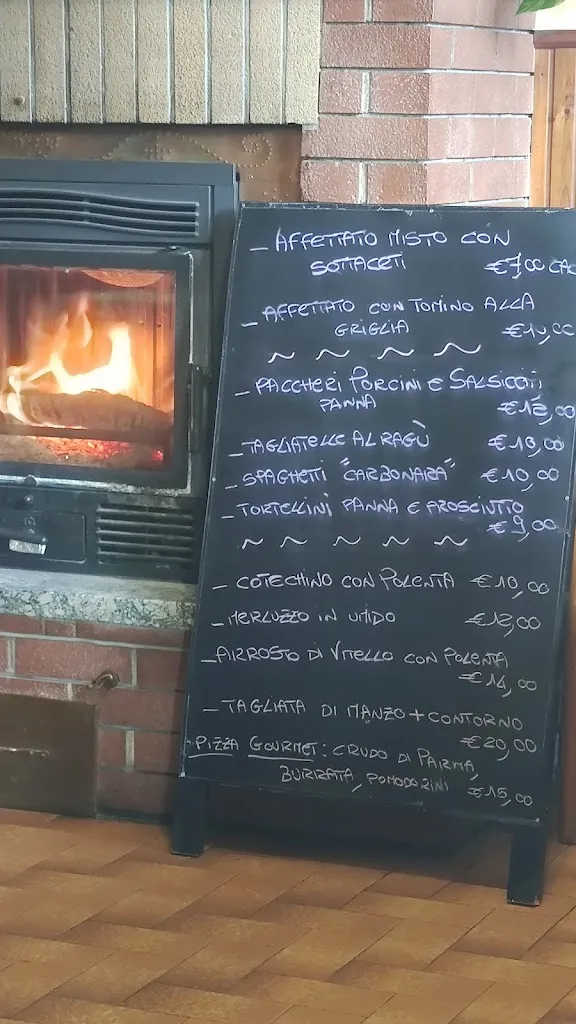 - AFFETTATO MISTO CON
SOTTACETI €7,00 CAD
- AFFETTATO CON TOMINO ALLA
GRIGLIA €10,00
- PACCHERI PORCINI E SALSICCIA
PANNA €12,00
- TAGLIATELLE AL RAGÙ €10,00
- SPAGHETTI "CARBONARA" €10,00
- TORTELLINI PANNA E PROSCIUTTO
€9,00
- COTECHINO CON POLENTA €10,00
- MERLUZZO IN UMIDO €12,00
- ARROSTO DI VITELLO CON POLENTA
€14,00
- TAGLIATA DI MANZO + CONTORNO
€20,00
- PIZZA GOURMET: CRUDO DI PARMA,
BURRATA, POMODORINI €15,00